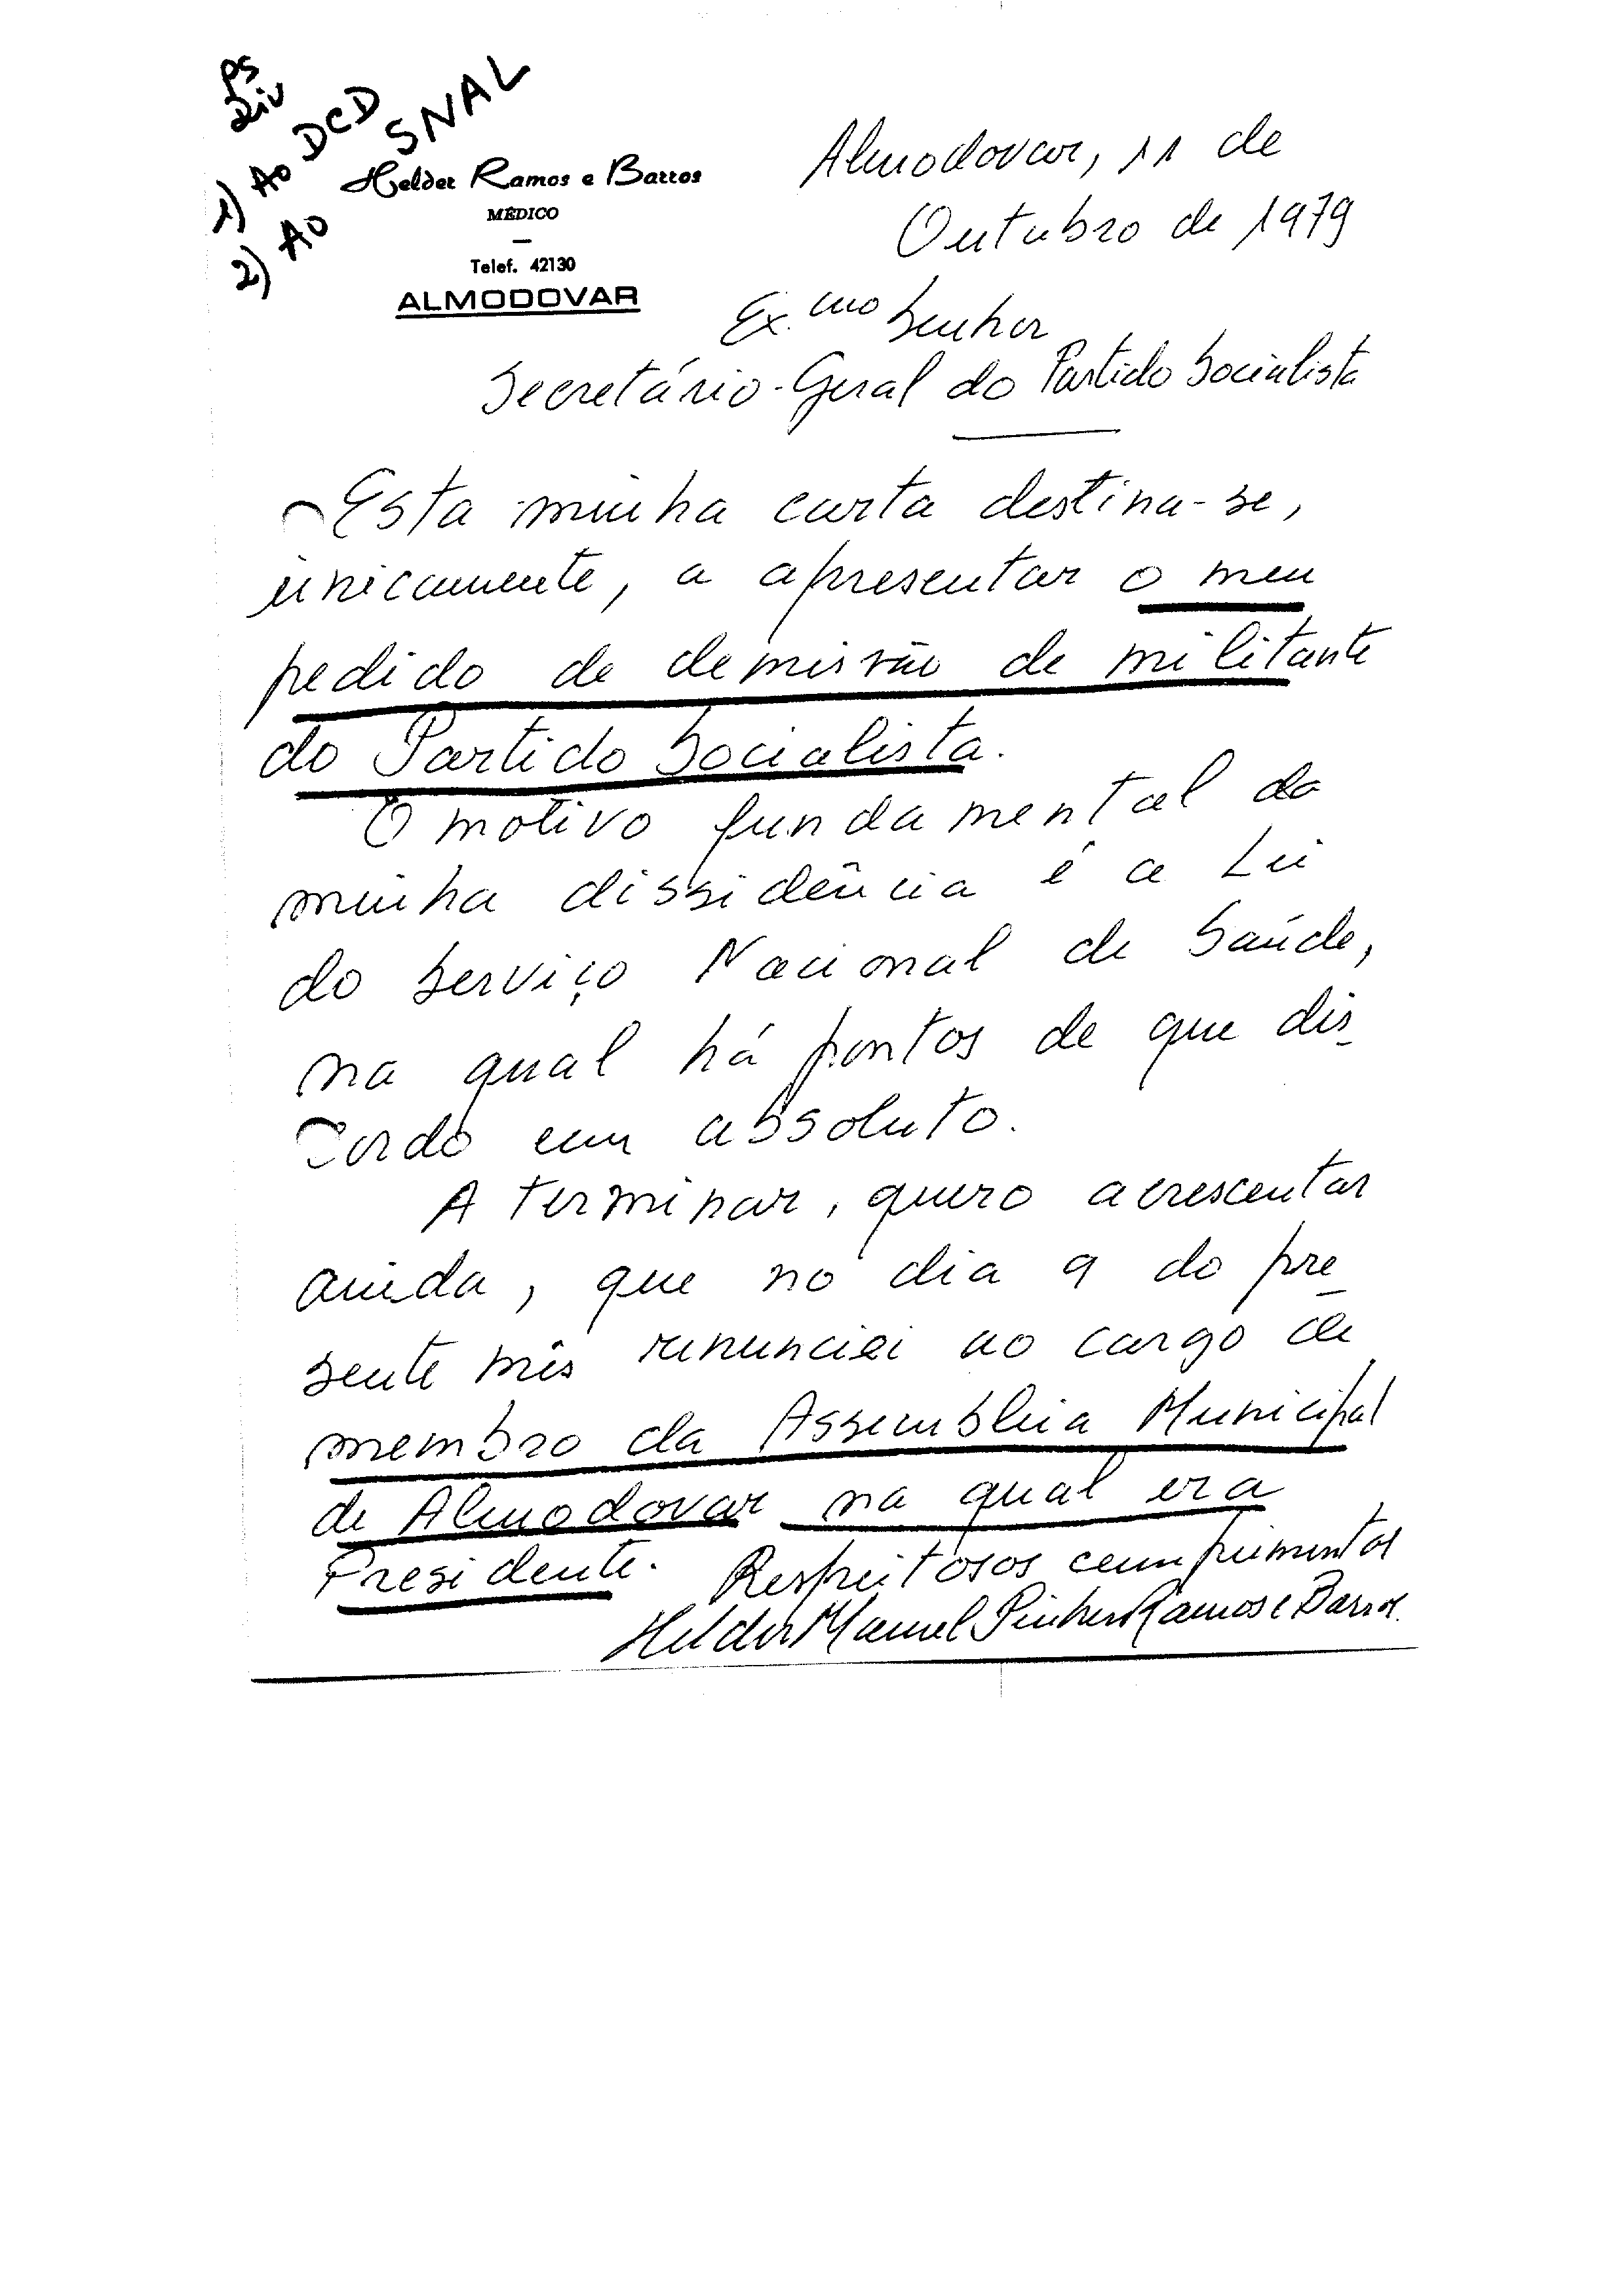 PS
Div
1) Ao DCD
2) Ao SNAL
Helder Ramos e Barros
MÉDICO
Telef. 42130
ALMODOVAR
Almodovar, 11 de
Outubro de 1979
Ex.mo Senhor
Secretário-Geral do Partido Socialista
Esta minha carta destina-se,
únicamente, a apresentar o meu
pedido de demissão de militante
do Partido Socialista.
O motivo fundamental da
minha dissidência é a Lei
do Serviço Nacional de Saúde,
na qual há pontos de que dis-
cordo em absoluto.
A terminar, quero acrescentar
ainda, que no dia 9 do pre-
sente mês renunciei ao cargo de
membro da Assembleia Municipal
de Almodovar na qual era
Presidente. Respeitosos cumprimentos
Helder Manuel Pinheiro Ramos e Barros.